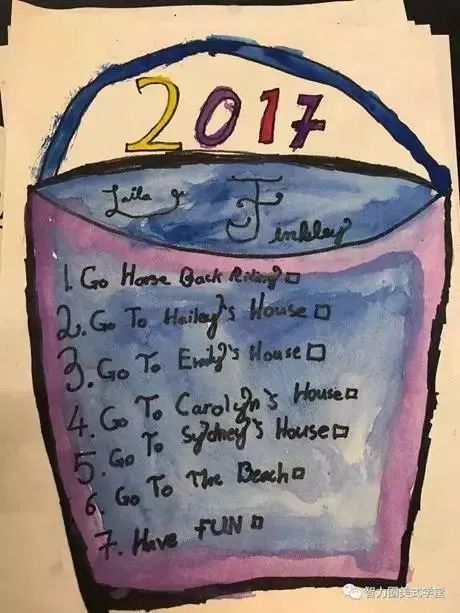 2017
Laila
Finkley
1. Go Horse Back Riding
2. Go To Hailey's House
3. Go To Emily's House
4. Go To Carolyn's House
5. Go To Sydney's House
6. Go To The Beach
7. Have FUN
智力圈美式学堂